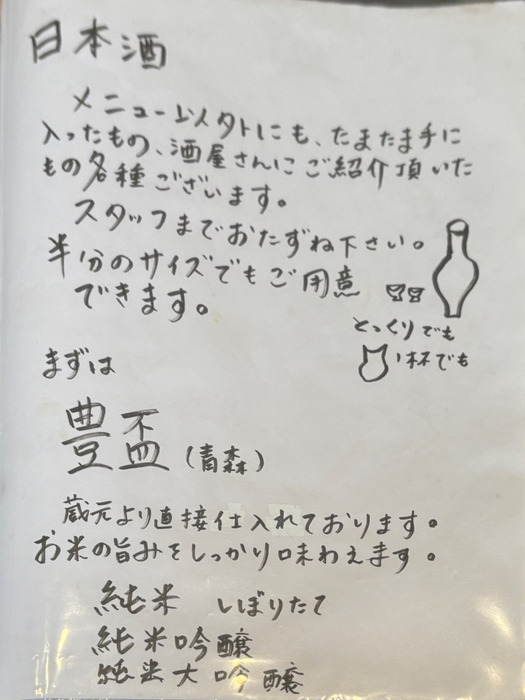 日本酒
メニュー以外にも、たまたま手に
入ったもの、酒屋さんにご紹介頂いた
もの各種ございます。
スタッフまでおたずね下さい。
半分のサイズでもご用意
できます。
とっくりでも
1杯でも
まずは
豊盃（青森）
蔵元より直接仕入れております。
お米の旨みをしっかり味わえます。
純米 しぼりたて
純米吟醸
純米大吟醸